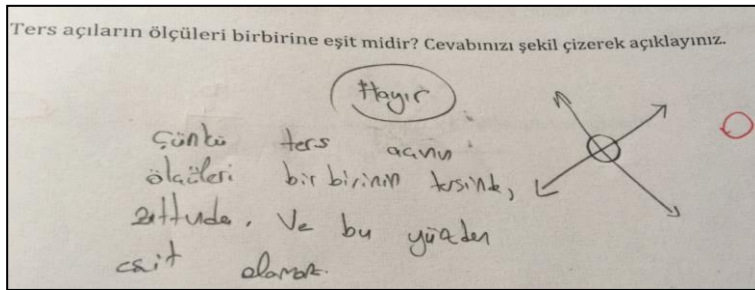 Ters açıların ölçüleri birbirine eşit midir? Cevabınızı şekil çizerek açıklayınız.
Hayır
Çünkü ters açının
ölçüleri bir birinin tersinde,
zıttında. Ve bu yüzden
eşit olamaz.